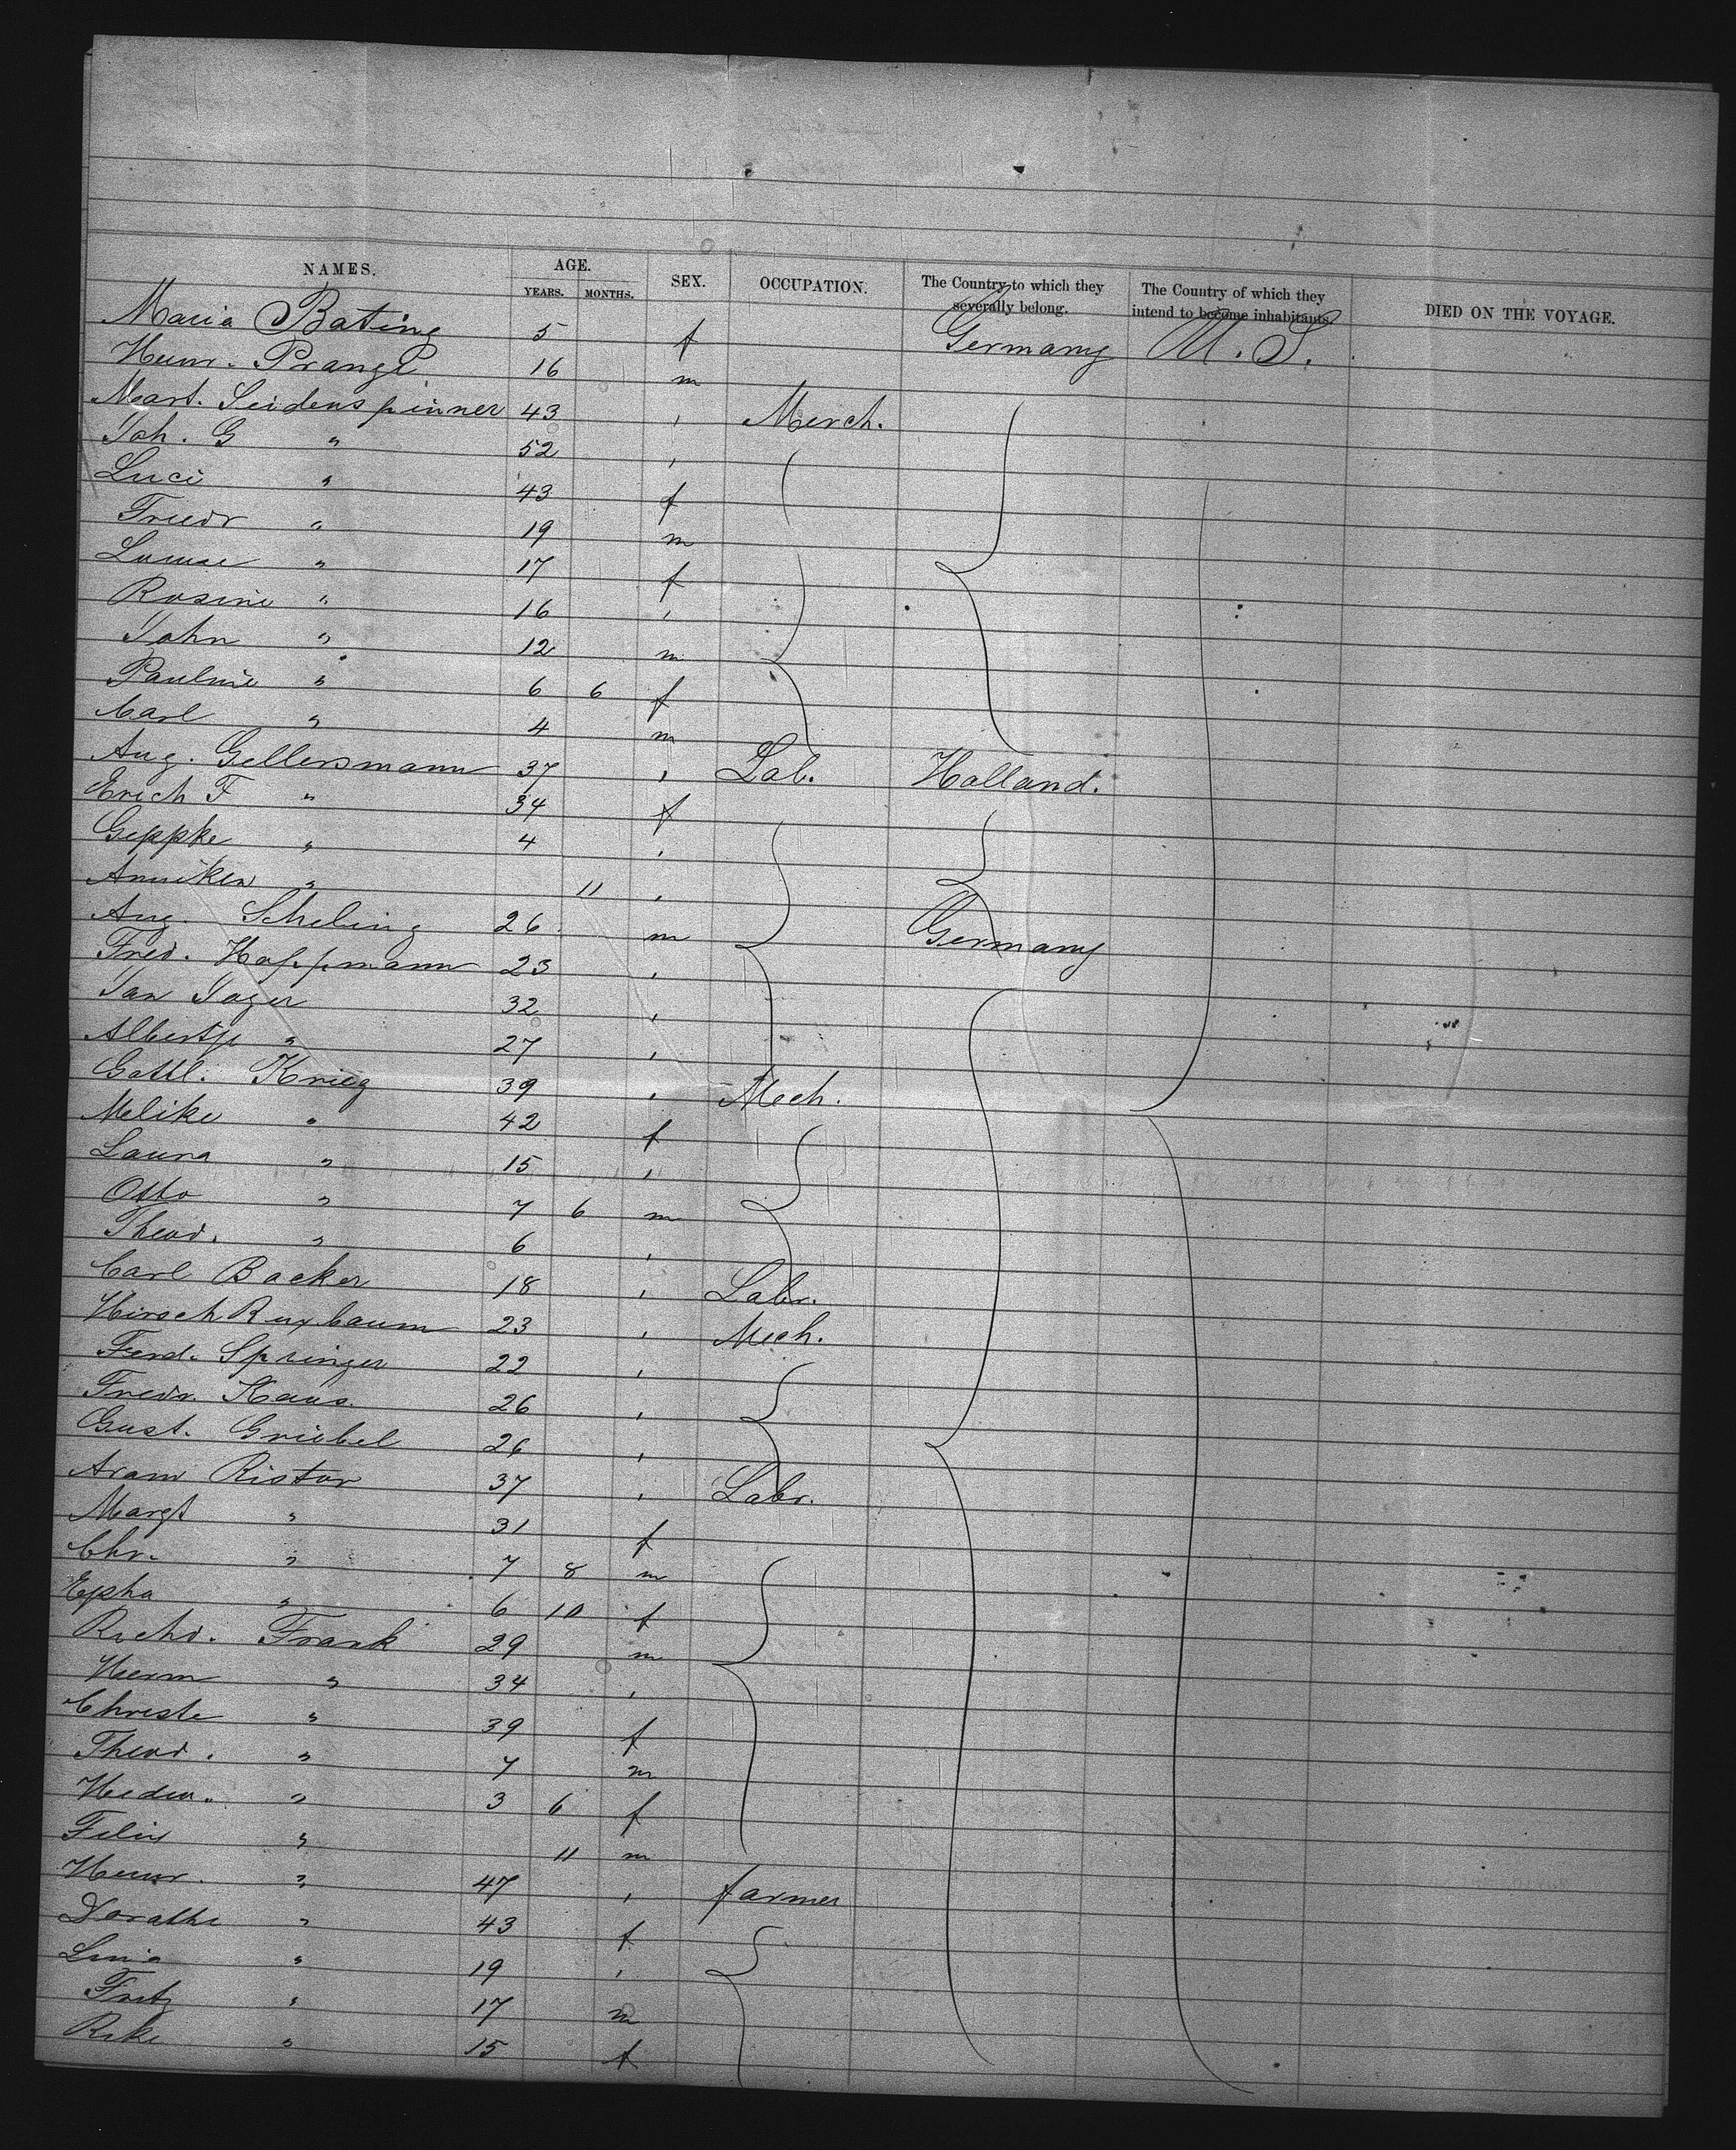 NAMES. AGE. SEX. OCCUPATION. The Country to which they severally belong. The Country of which they intend to become inhabitants. DIED ON THE VOYAGE.
YEARS. MONTHS.
Maria Bating 5 f Germany U. S.
Heinr. Prange 16 m
Mart. Seidenspinner 43 " Merch.
Joh. G " 52 "
Luci " 43 f
Friedr " 19 m
Luise " 17 f
Rosine " 16 "
John " 12 m
Pauline " 6 6 f
Carl " 4 m
Aug. Gellersmann 37 " Lab. Holland.
Erich F " 34 f
Geppke " 4 "
Anniken " 11 "
Aug. Scheling 26 m Germany
Fred. Hoffmann 23 "
Jan Jager 32 "
Albertje " 27 "
Gottl. Krieg 39 " Mech.
Melike " 42 f
Laura " 15 "
Otto " 7 6 m
Theod. " 6 "
Carl Backer 18 " Labr.
Hirsch Ruxbaum 23 " Mech.
Ferd. Springer 22 "
Fredr. Kaus. 26 "
Gust. Griebel 26 "
Adam Ristor 37 " Labr.
Margt " 31 f
Chr. " 7 8 m
Epha " 6 10 f
Richd. Frank 29 m
Herm " 34 "
Christe " 39 f
Theod. " 7 m
Hedw. " 3 6 f
Felix " 11 m
Heinr. " 47 " farmer
Dorathe " 43 f
Lina " 19 "
Fritz " 17 m
Rike " 15 f